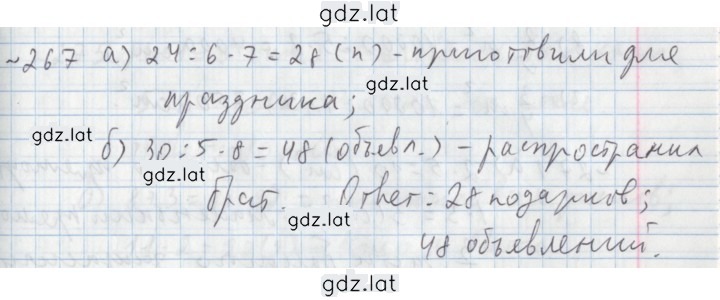 gdz.lat
~267 а) 24:6·7=28 (п) - приготовили для
gdz.lat
праздника;
gdz.lat
б) 30:5·8=48 (объявл.) - распространил
gdz.lat
брат. Ответ: 28 подарков;
gdz.lat
48 объявлений.
gdz.lat